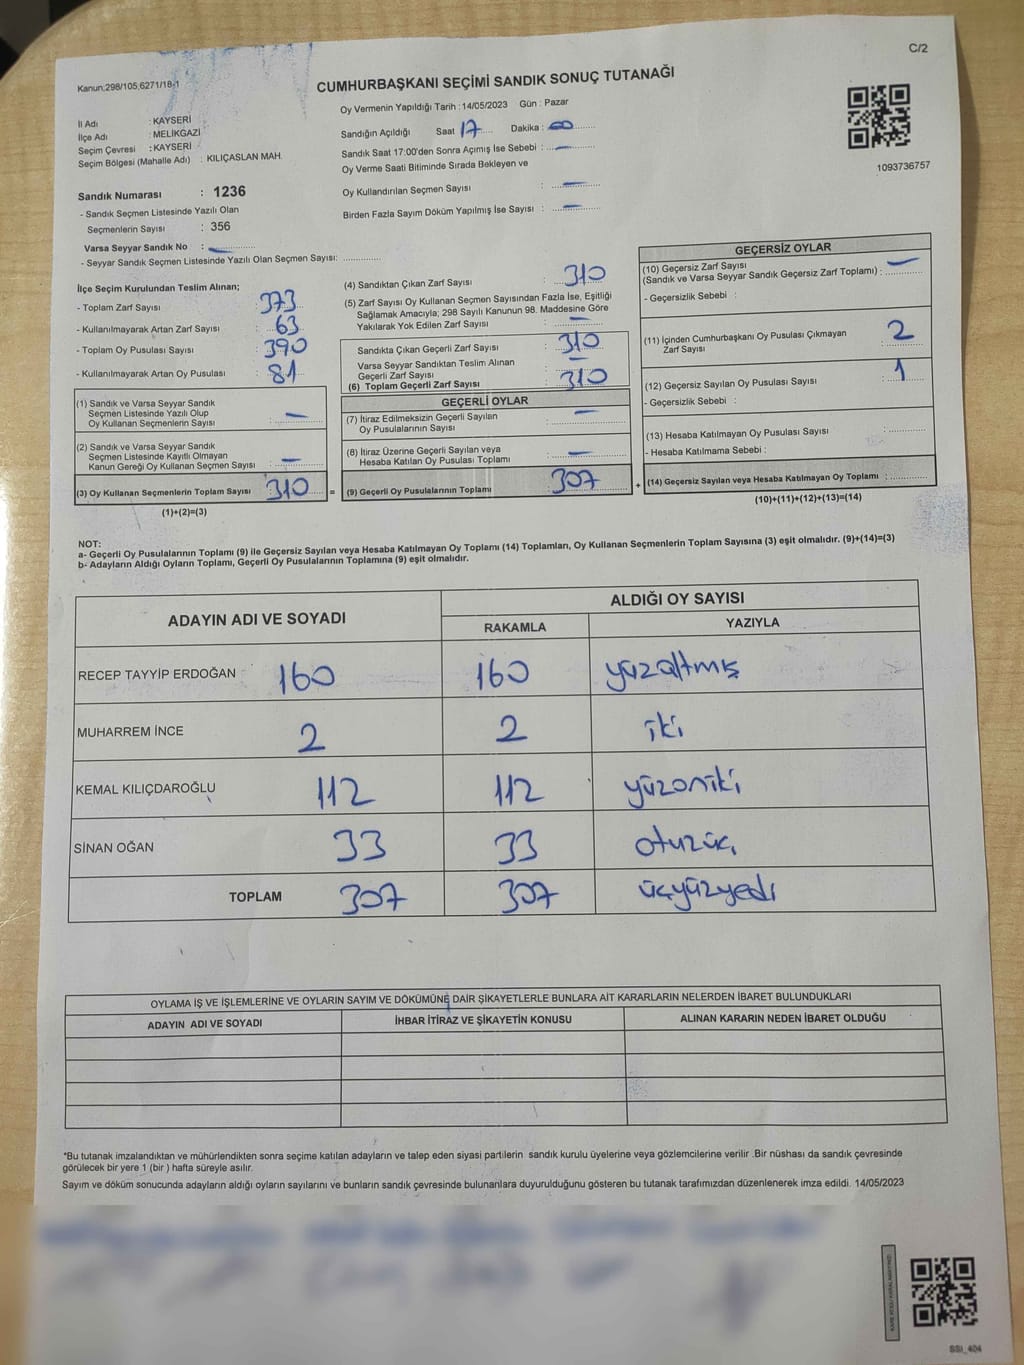 C/2
Kanun;298/105,6271/18-1
CUMHURBAŞKANI SEÇİMİ SANDIK SONUÇ TUTANAĞI
Oy Vermenin Yapıldığı Tarih : 14/05/2023 Gün : Pazar
İl Adı : KAYSERİ
İlçe Adı : MELİKGAZİ
Seçim Çevresi : KAYSERİ
Seçim Bölgesi (Mahalle Adı) : KILIÇASLAN MAH.
Sandığın Açıldığı Saat 17 Dakika : 00
Sandık Saat 17:00'den Sonra Açımış İse Sebebi : —
Oy Verme Saati Bitiminde Sırada Bekleyen ve
Oy Kullandırılan Seçmen Sayısı : —
Birden Fazla Sayım Döküm Yapılmış İse Sayısı : —
1093736757
Sandık Numarası : 1236
- Sandık Seçmen Listesinde Yazılı Olan
Seçmenlerin Sayısı : 356
Varsa Seyyar Sandık No : —
- Seyyar Sandık Seçmen Listesinde Yazılı Olan Seçmen Sayısı:
İlçe Seçim Kurulundan Teslim Alınan;
- Toplam Zarf Sayısı : 373
- Kullanılmayarak Artan Zarf Sayısı : 63
- Toplam Oy Pusulası Sayısı : 390
- Kullanılmayarak Artan Oy Pusulası : 81
(1) Sandık ve Varsa Seyyar Sandık
Seçmen Listesinde Yazılı Olup
Oy Kullanan Seçmenlerin Sayısı : —
(2) Sandık ve Varsa Seyyar Sandık
Seçmen Listesinde Kayıtlı Olmayan
Kanun Gereği Oy Kullanan Seçmen Sayısı : —
(3) Oy Kullanan Seçmenlerin Toplam Sayısı 310 =
(1)+(2)=(3)
(4) Sandıktan Çıkan Zarf Sayısı : 310
(5) Zarf Sayısı Oy Kullanan Seçmen Sayısından Fazla İse, Eşitliği
Sağlamak Amacıyla; 298 Sayılı Kanunun 98. Maddesine Göre
Yakılarak Yok Edilen Zarf Sayısı : —
Sandıkta Çıkan Geçerli Zarf Sayısı : 310
Varsa Seyyar Sandıktan Teslim Alınan
Geçerli Zarf Sayısı : —
(6) Toplam Geçerli Zarf Sayısı : 310
GEÇERLİ OYLAR
(7) İtiraz Edilmeksizin Geçerli Sayılan
Oy Pusulalarının Sayısı : —
(8) İtiraz Üzerine Geçerli Sayılan veya
Hesaba Katılan Oy Pusulası Toplamı : —
(9) Geçerli Oy Pusulalarının Toplamı : 307 +
GEÇERSİZ OYLAR
(10) Geçersiz Zarf Sayısı
(Sandık ve Varsa Seyyar Sandık Geçersiz Zarf Toplamı) : —
- Geçersizlik Sebebi :
(11) İçinden Cumhurbaşkanı Oy Pusulası Çıkmayan
Zarf Sayısı : 2
(12) Geçersiz Sayılan Oy Pusulası Sayısı : 1
- Geçersizlik Sebebi :
(13) Hesaba Katılmayan Oy Pusulası Sayısı :
- Hesaba Katılmama Sebebi :
(14) Geçersiz Sayılan veya Hesaba Katılmayan Oy Toplamı :
(10)+(11)+(12)+(13)=(14)
NOT:
a- Geçerli Oy Pusulalarının Toplamı (9) ile Geçersiz Sayılan veya Hesaba Katılmayan Oy Toplamı (14) Toplamları, Oy Kullanan Seçmenlerin Toplam Sayısına (3) eşit olmalıdır. (9)+(14)=(3)
b- Adayların Aldığı Oyların Toplamı, Geçerli Oy Pusulalarının Toplamına (9) eşit olmalıdır.
ADAYIN ADI VE SOYADI ALDIĞI OY SAYISI
RAKAMLA YAZIYLA
RECEP TAYYİP ERDOĞAN 160 160 yüzaltmış
MUHARREM İNCE 2 2 iki
KEMAL KILIÇDAROĞLU 112 112 yüzoniki
SİNAN OĞAN 33 33 otuzüç
TOPLAM 307 307 üçyüzyedi
OYLAMA İŞ VE İŞLEMLERİNE VE OYLARIN SAYIM VE DÖKÜMÜNE DAİR ŞİKAYETLERLE BUNLARA AİT KARARLARIN NELERDEN İBARET BULUNDUKLARI
ADAYIN ADI VE SOYADI İHBAR İTİRAZ VE ŞİKAYETİN KONUSU ALINAN KARARIN NEDEN İBARET OLDUĞU
*Bu tutanak imzalandıktan ve mühürlendikten sonra seçime katılan adayların ve talep eden siyasi partilerin sandık kurulu üyelerine veya gözlemcilerine verilir .Bir nüshası da sandık çevresinde
görülecek bir yere 1 (bir ) hafta süreyle asılır.
Sayım ve döküm sonucunda adayların aldığı oyların sayılarını ve bunların sandık çevresinde bulunanlara duyurulduğunu gösteren bu tutanak tarafımızdan düzenlenerek imza edildi. 14/05/2023
KARE KODU KARALAMAYINIZ!
SSI_404